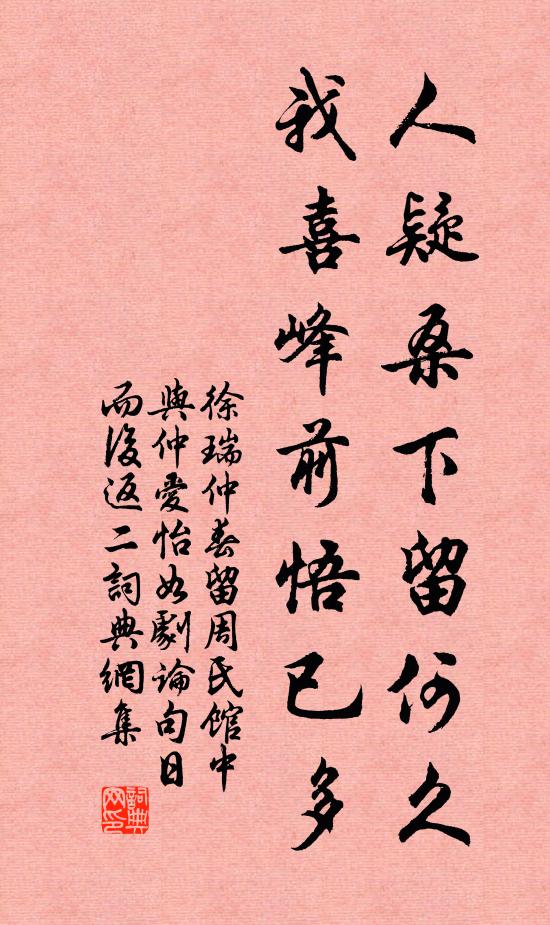 人疑桑下留何久
我喜峰前悟已多
徐瑞仲春留周民館中
與仲愛怡如劇論句日
而後返二詞典網集
詞典網印